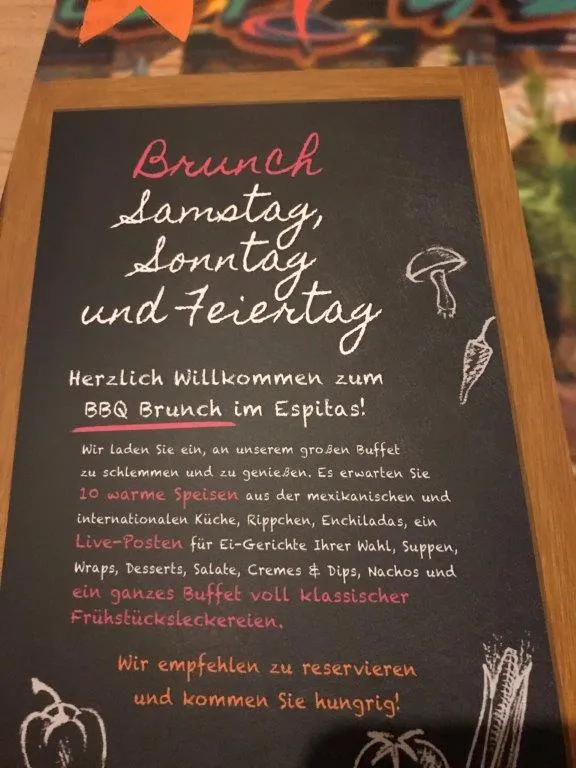 Brunch
Samstag,
Sonntag
und Feiertag
Herzlich Willkommen zum
BBQ Brunch im Espitas!
Wir laden Sie ein, an unserem großen Buffet
zu schlemmen und zu genießen. Es erwarten Sie
10 warme Speisen aus der mexikanischen und
internationalen Küche, Rippchen, Enchiladas, ein
Live-Posten für Ei-Gerichte Ihrer Wahl, Suppen,
Wraps, Desserts, Salate, Cremes & Dips, Nachos und
ein ganzes Buffet voll klassischer
Frühstücksleckereien.
Wir empfehlen zu reservieren
und kommen Sie hungrig!